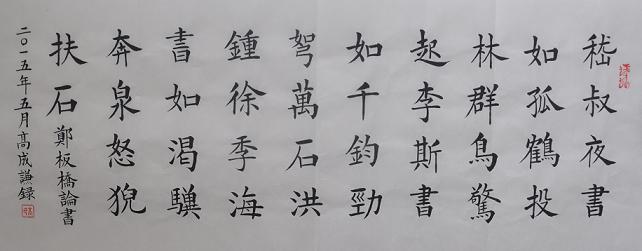 嵇叔夜書
如孤鶴投
林群鳥驚
起李斯書
如千鈞勁
弩萬石洪
鍾徐季海
書如渴驥
奔泉怒猊
扶石鄭板橋論書
二〇一五年五月高成謙録